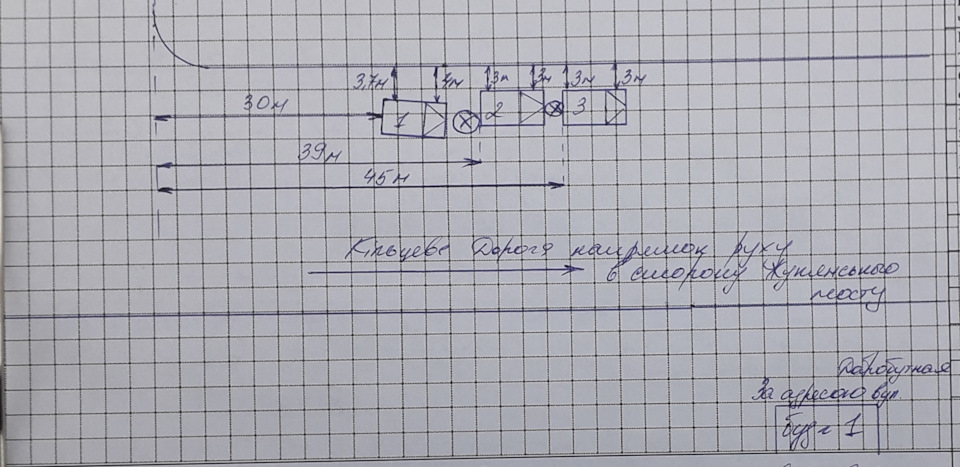 3,7м 4м 3м 3м 3м 3м
30м
1 2 3
39м
45м
Кільцева Дорога напрямок руху
в сторону Жулянського
мосту
За адресою вул.
буд. 1